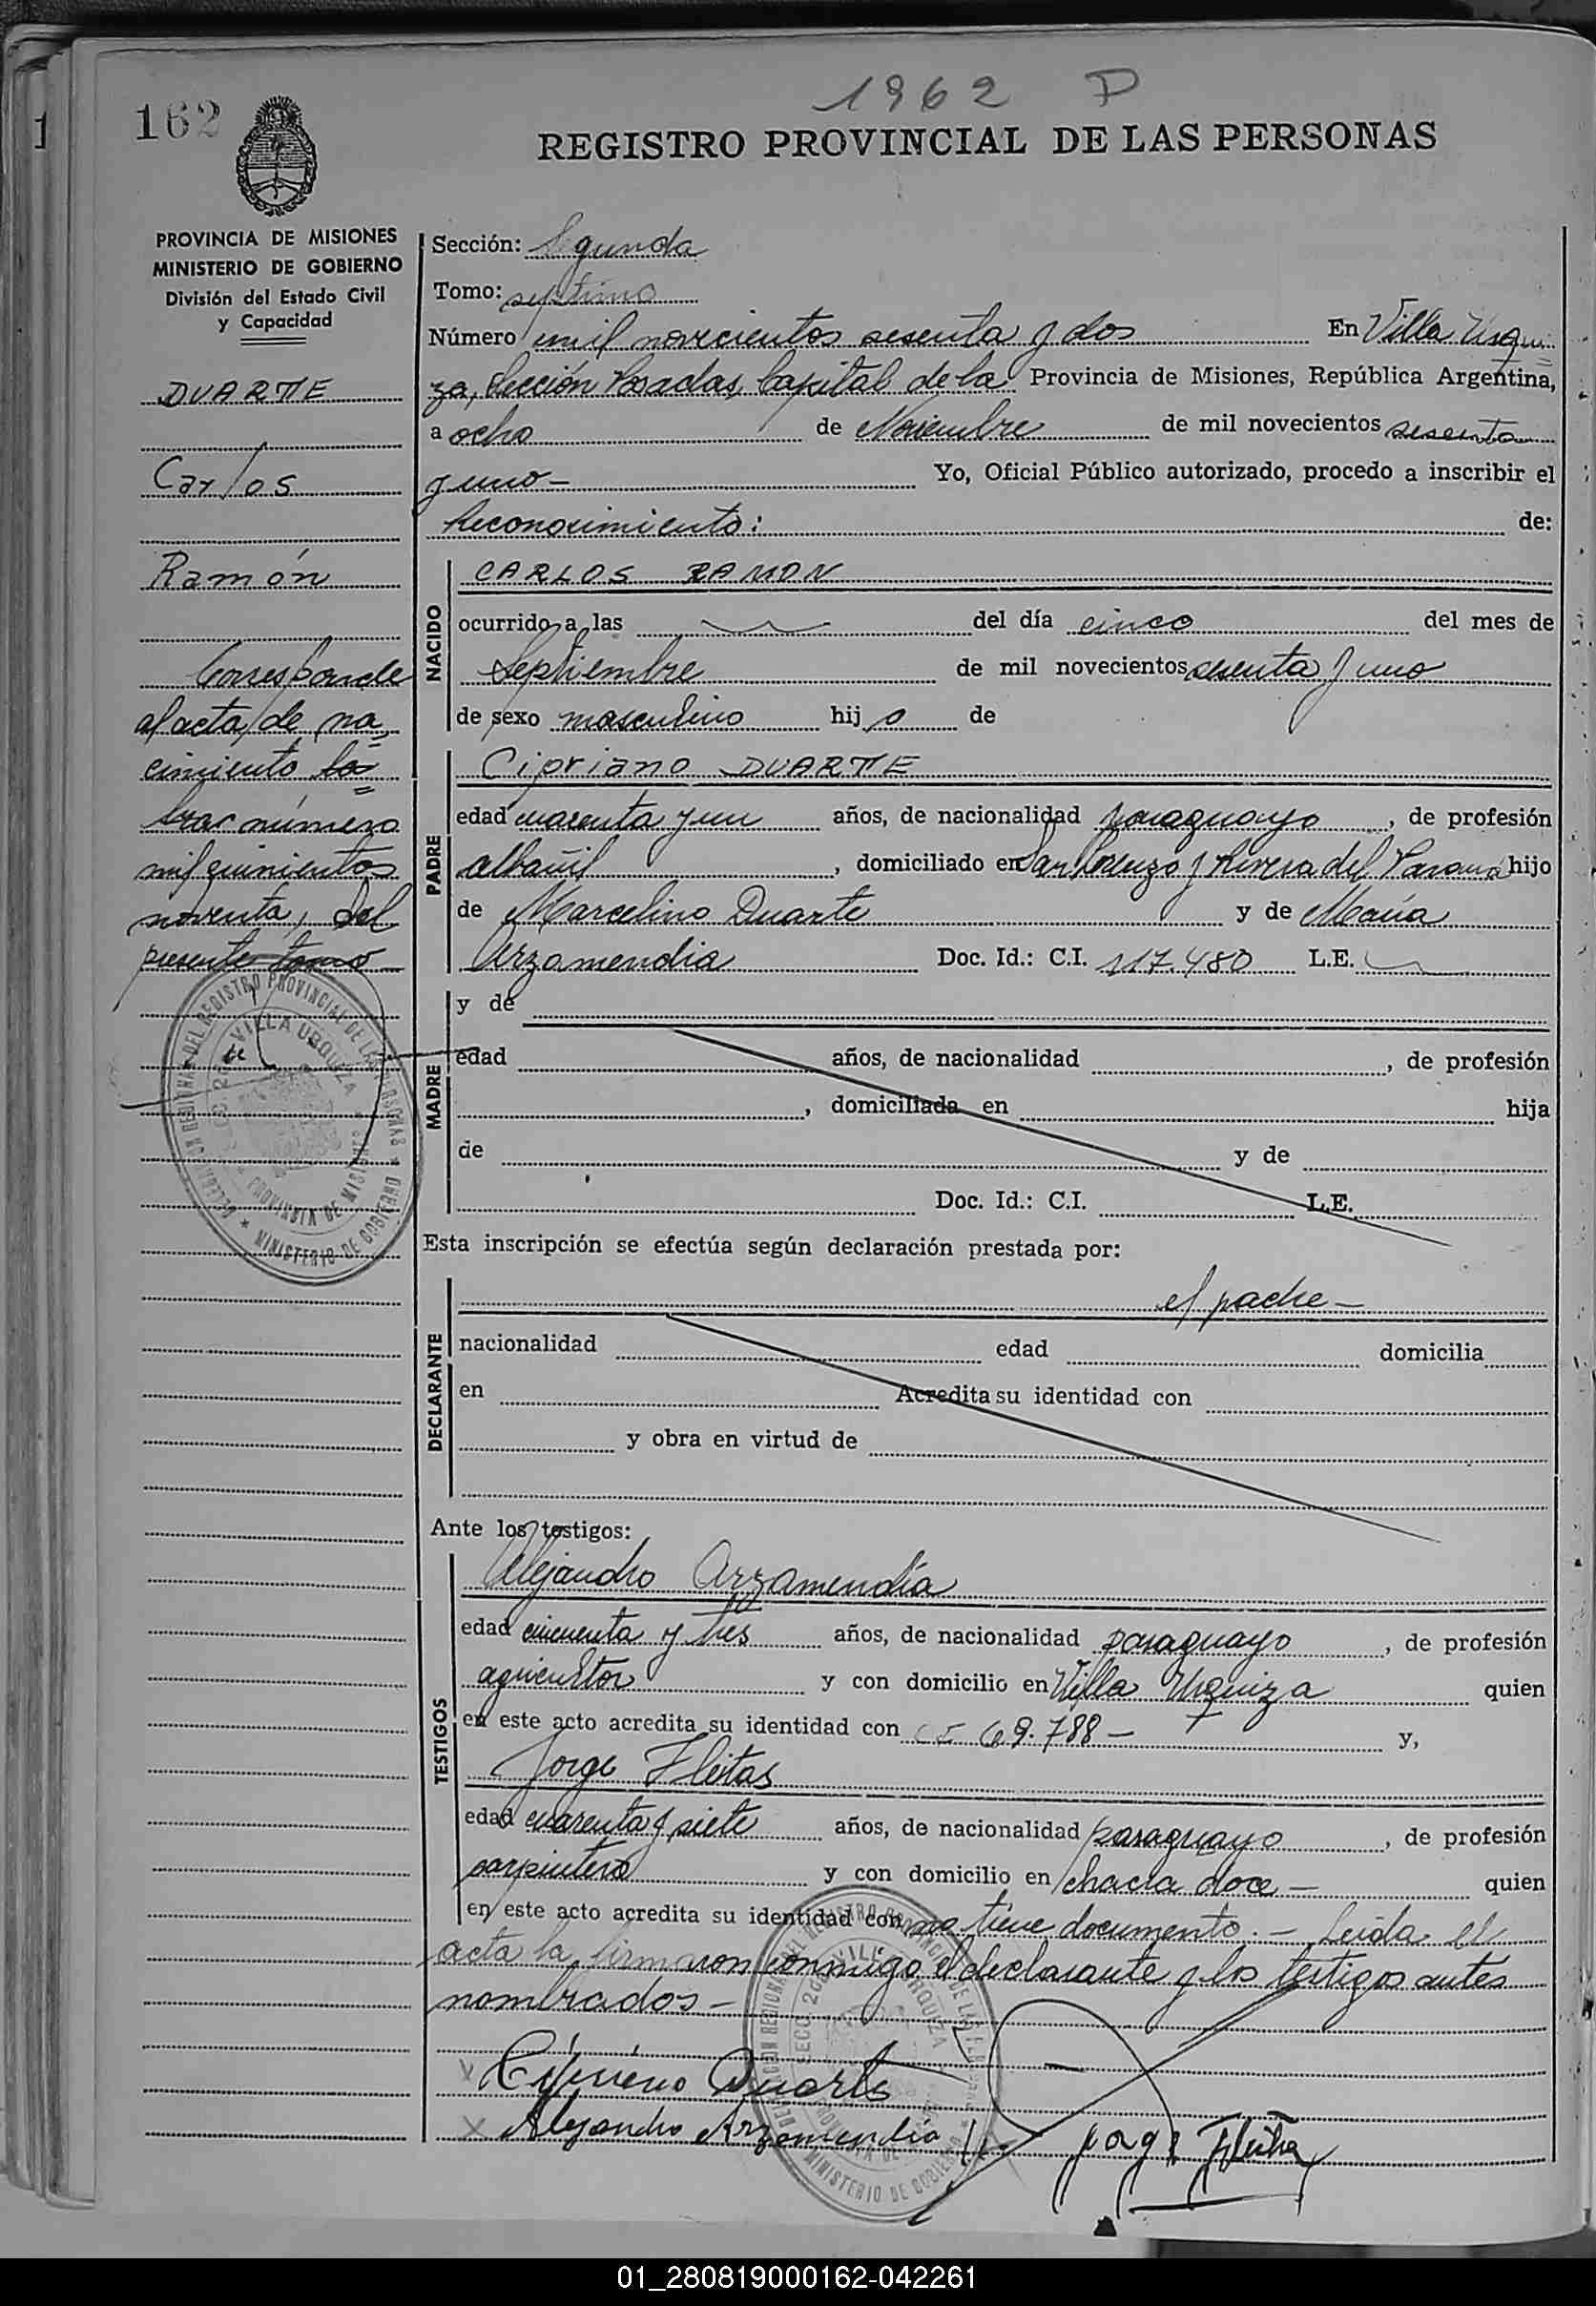 1962 P
162
REGISTRO PROVINCIAL DE LAS PERSONAS
PROVINCIA DE MISIONES
MINISTERIO DE GOBIERNO
División del Estado Civil
y Capacidad
DUARTE
Carlos
Ramón
Corresponde
al acta de na
cimiento la
brar número
mil quinientos
noventa, del
presente tomo
Sección: Segunda
Tomo: septimo
Número mil novecientos sesenta y dos En Villa Urqui
za, Sección Posadas, Capital de la Provincia de Misiones, República Argentina,
a ocho de Noviembre de mil novecientos sesenta
y uno - Yo, Oficial Público autorizado, procedo a inscribir el
Reconocimiento: de:
NACIDO
CARLOS RAMON
ocurrido a las del día cinco del mes de
Septiembre de mil novecientos sesenta y uno
de sexo masculino hijo de
PADRE
Cipriano DUARTE
edad cuarenta y un años, de nacionalidad paraguayo, de profesión
albañil, domiciliado en San Lorenzo y Rivera del Paraná hijo
de Marcelino Duarte y de María
Arzamendia Doc. Id.: C.I. 117.480 L.E.
MADRE
y de
edad años, de nacionalidad, de profesión
, domiciliada en hija
de y de
Doc. Id.: C.I. L.E.
Esta inscripción se efectúa según declaración prestada por:
DECLARANTE
el padre -
nacionalidad edad domicilia
en Acredita su identidad con
y obra en virtud de
Ante los testigos:
TESTIGOS
Alejandro Arzamendia
edad cincuenta y tres años, de nacionalidad paraguayo, de profesión
agricultor y con domicilio en Villa Urquiza quien
en este acto acredita su identidad con CI 69.788 - y,
Jorge Fleitas
edad cuarenta y siete años, de nacionalidad paraguayo, de profesión
carpintero y con domicilio en chacra doce - quien
en este acto acredita su identidad con no tiene documento. - Leida el
acta la firmaron conmigo el declarante y los testigos antes
nombrados -
Cipriano Duarte
Alejandro Arzamendia
Jorge Fleitas
01_280819000162-042261